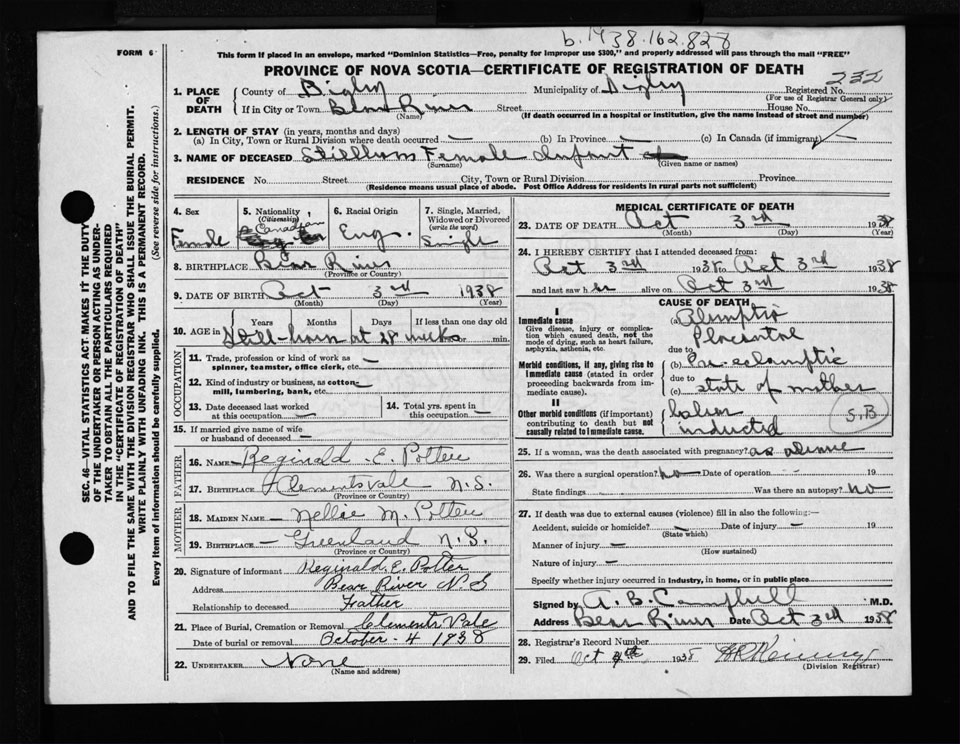 b. 1938.162.828
FORM 6
This form if placed in an envelope, marked "Dominion Statistics—Free, penalty for improper use $300," and properly addressed will pass through the mail "FREE"
PROVINCE OF NOVA SCOTIA—CERTIFICATE OF REGISTRATION OF DEATH
232
1. PLACE OF DEATH
County of Digby Municipality of Digby Registered No.
(For use of Registrar General only)
If in City or Town Bear River Street House No.
(Name) (If death occurred in a hospital or institution, give the name instead of street and number)
2. LENGTH OF STAY (in years, months and days)
(a) In City, Town or Rural Division where death occurred — (b) In Province — (c) In Canada (if immigrant)
3. NAME OF DECEASED Stillborn Female Infant
(Surname) (Given name or names)
RESIDENCE No. Street City, Town or Rural Division Province
(Residence means usual place of abode. Post Office Address for residents in rural parts not sufficient)
4. Sex Female
5. Nationality (Citizenship) Canadian
6. Racial Origin Eng.
7. Single, Married, Widowed or Divorced (write the word) Single
8. BIRTHPLACE Bear River
(Province or Country)
9. DATE OF BIRTH Oct 3rd 1938
(Month) (Day) (Year)
10. AGE in Years Months Days If less than one day old
Still-born at 28 weeks or min.
OCCUPATION
11. Trade, profession or kind of work as spinner, teamster, office clerk, etc. —
12. Kind of industry or business, as cotton-mill, lumbering, bank, etc. —
13. Date deceased last worked at this occupation —
14. Total yrs. spent in this occupation —
15. If married give name of wife or husband of deceased —
FATHER
16. NAME — Reginald E. Potter
17. BIRTHPLACE Clementsvale N.S.
(Province or Country)
MOTHER
18. MAIDEN NAME — Nellie M. Potter
19. BIRTHPLACE — Greenland N.S.
(Province or Country)
20. Signature of informant Reginald. E. Potter
Address Bear River N.S
Relationship to deceased Father
21. Place of Burial, Cremation or Removal Clements Vale
Date of burial or removal October - 4 1938
22. UNDERTAKER None
(Name and address)
MEDICAL CERTIFICATE OF DEATH
23. DATE OF DEATH Oct 3rd 1938
(Month) (Day) (Year)
24. I HEREBY CERTIFY that I attended deceased from:
Oct 3rd 1938 to Oct 3rd 1938
and last saw her alive on Oct 3rd 1938
CAUSE OF DEATH
I
Immediate cause
Give disease, injury or complication which caused death, not the mode of dying, such as heart failure, asphyxia, asthenia, etc.
(a)
Placental
due to
Morbid conditions, if any, giving rise to immediate cause (stated in order proceeding backwards from immediate cause).
(b) Pre-eclamptic
due to
(c) state of mother
II
Other morbid conditions (if important) contributing to death but not causally related to immediate cause.
Labor
induced
S.B
25. If a woman, was the death associated with pregnancy? as above
26. Was there a surgical operation? no Date of operation - 19
State findings Was there an autopsy? no
27. If death was due to external causes (violence) fill in also the following:—
Accident, suicide or homicide? — Date of injury — 19
(State which)
Manner of injury —
(How sustained)
Nature of injury —
Specify whether injury occurred in industry, in home, or in public place
Signed by A. B. Campbell M.D.
Address Bear River Date Oct 3rd 1938
28. Registrar's Record Number
29. Filed Oct 4th 1938
(Division Registrar)
SEC. 46—VITAL STATISTICS ACT MAKES IT THE DUTY
OF THE UNDERTAKER OR PERSON ACTING AS UNDER-
TAKER TO OBTAIN ALL THE PARTICULARS REQUIRED
IN THE "CERTIFICATE OF REGISTRATION OF DEATH"
AND TO FILE THE SAME WITH THE DIVISION REGISTRAR WHO SHALL ISSUE THE BURIAL PERMIT.
WRITE PLAINLY WITH UNFADING INK. THIS IS A PERMANENT RECORD.
Every item of information should be carefully supplied. (See reverse side for instructions.)